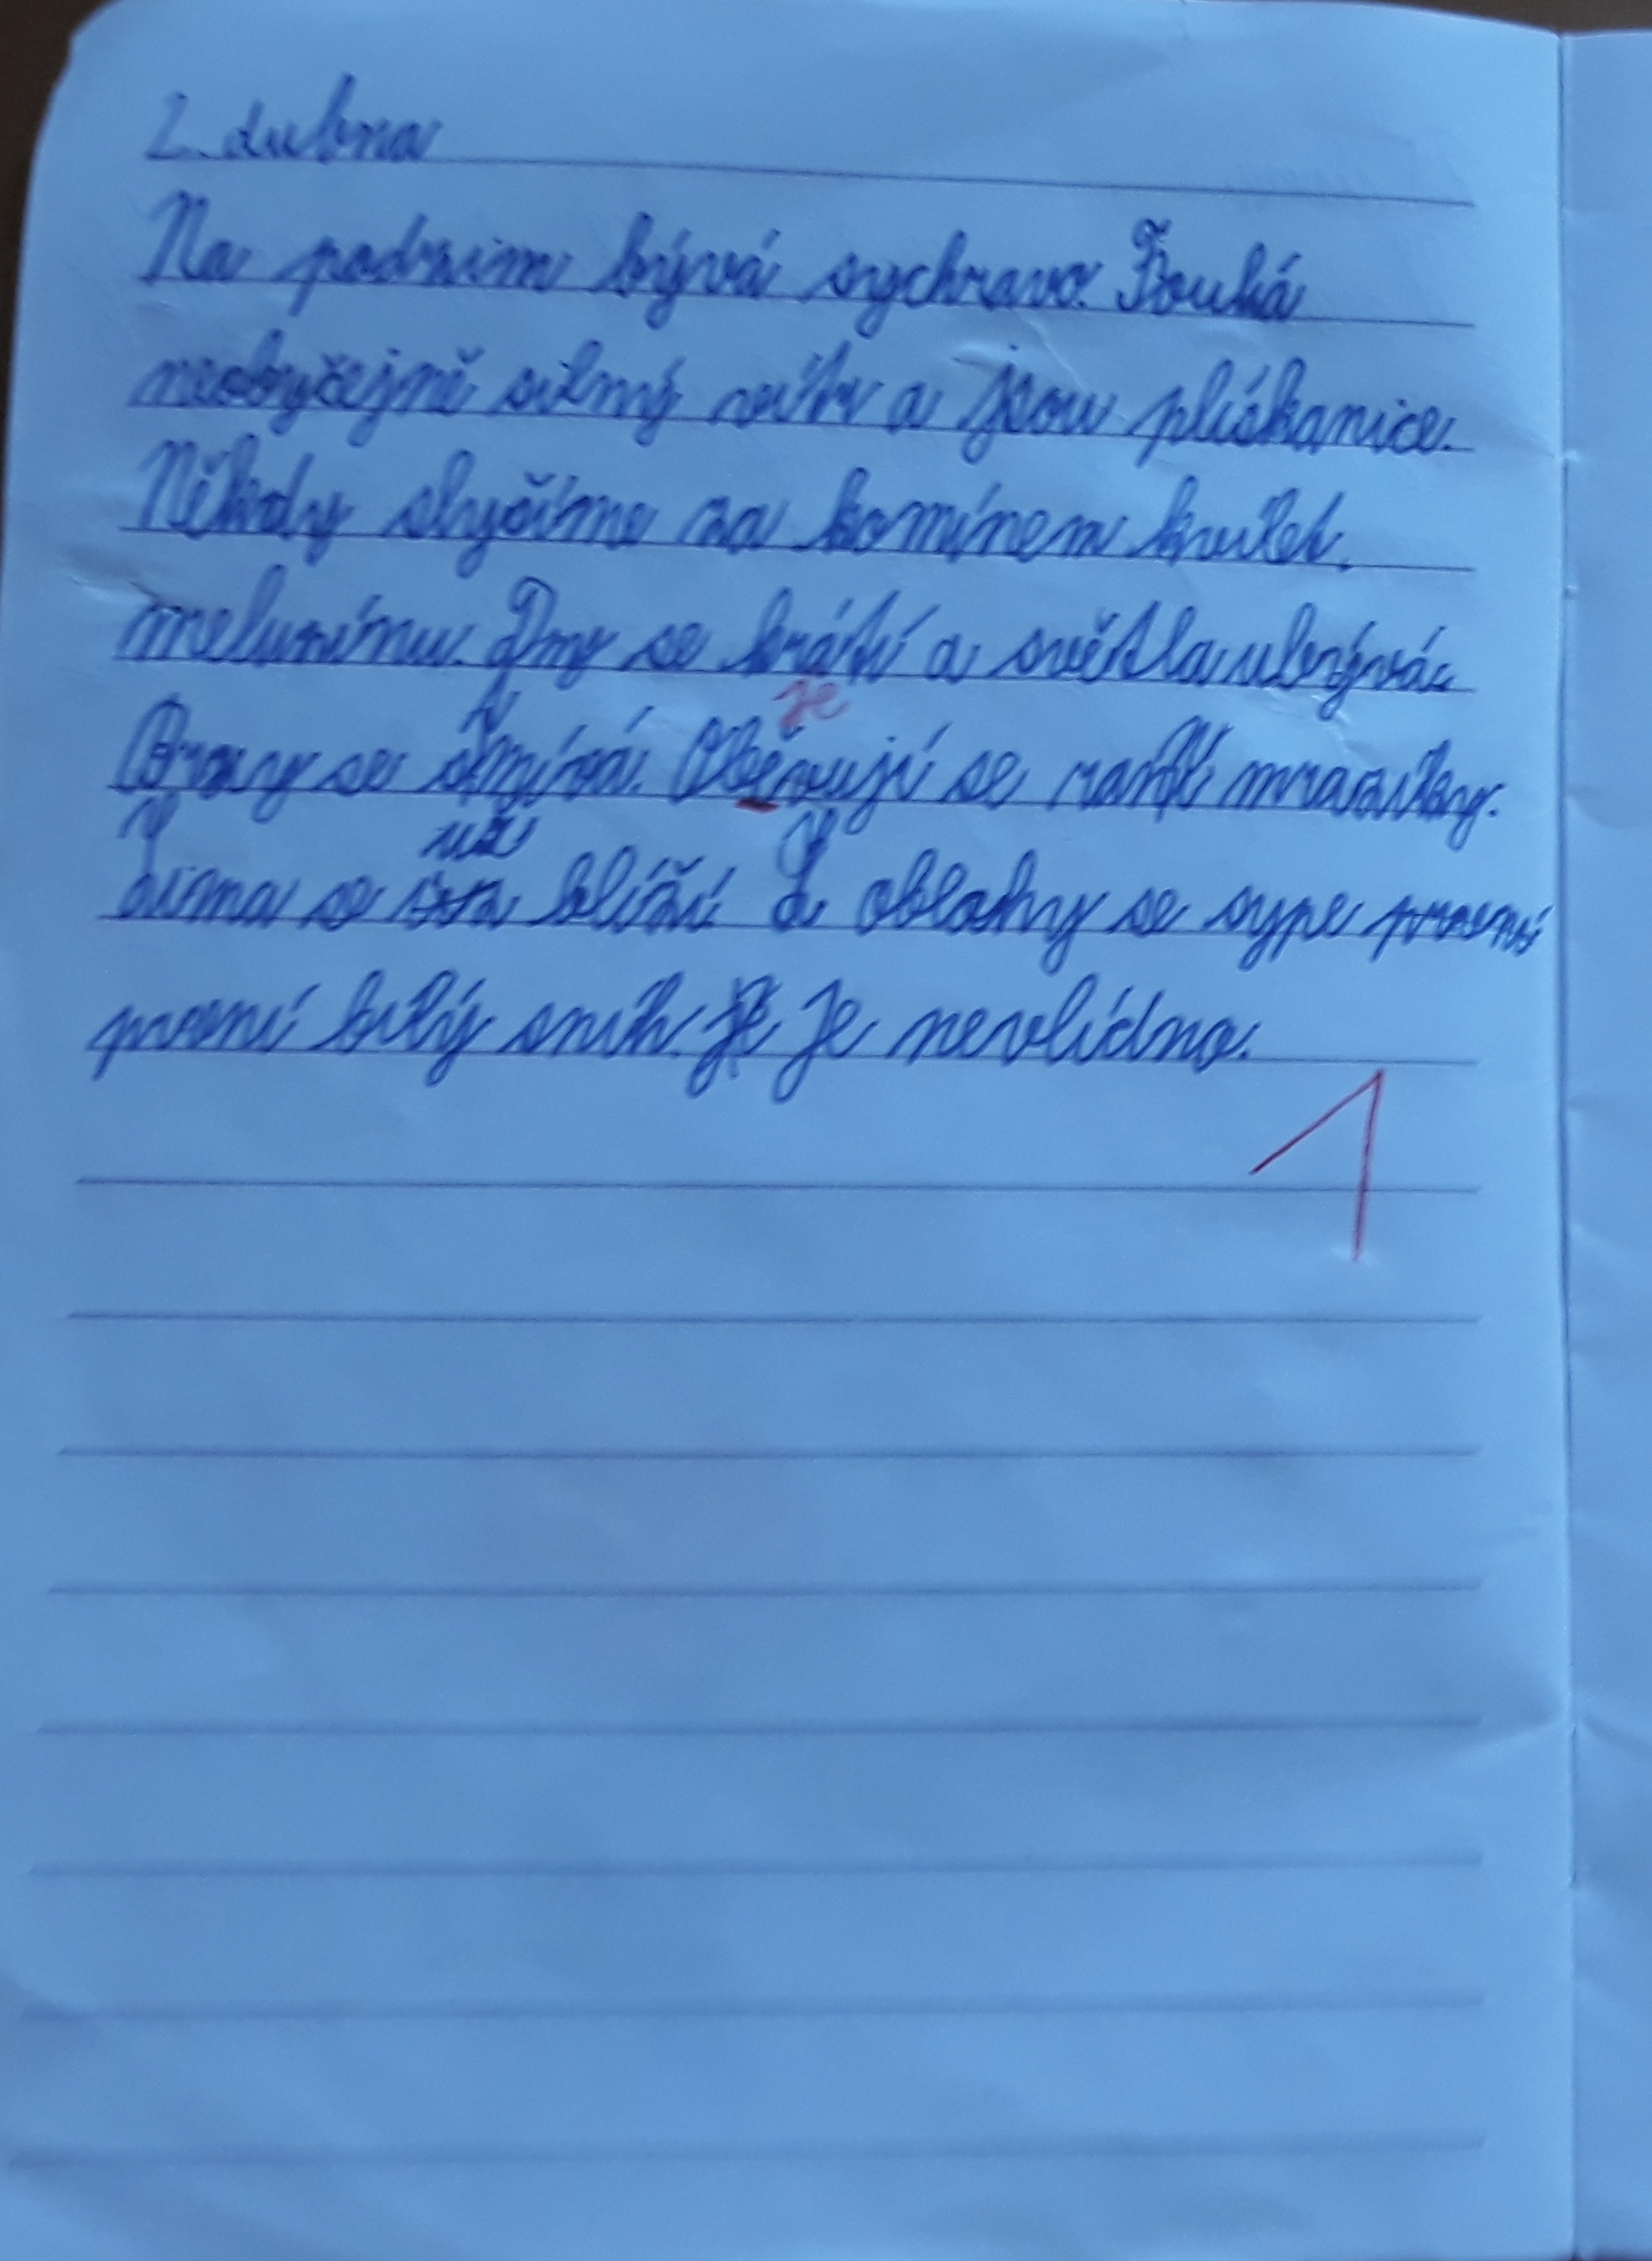 2. dubna
Na podzim bývá sychravo. Fouká
neobyčejně silný vítr a jsou plískanice.
Někdy slyšíme za komínem kvílet
melunínu. Dny se krátí a světla ubývá.
Brzy se stmívá. Oběvují se ranní mrazíky.
je
Zima se už blíží Z oblohy se sype
první bílý sníh. Je nevlídno.
1